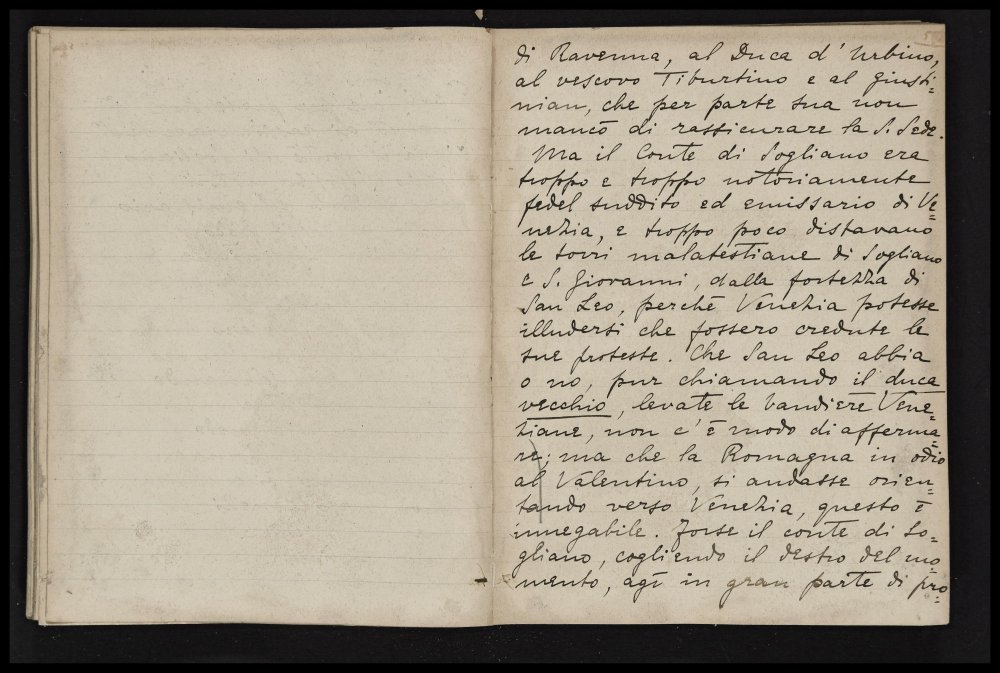 di Ravenna, al Duca d'Urbino,
al vescovo Tiburtino e al Giusti=
nian, che per parte sua non
mancò di rassicurare la S. Sede.
Ma il Conte di Sogliano era
troppo e troppo notoriamente
fedel suddito ed emissario di Ve=
nezia, e troppo poco distavano
le torri malatestiane di Sogliano
e S. Giovanni, dalla fortezza di
San Leo, perchè Venezia potesse
illudersi che fossero credute le
sue proteste. Che San Leo abbia
o no, pur chiamando il duca
vecchio, levate le bandiere Vene=
ziane, non c'è modo di afferma=
re; ma che la Romagna in odio
al Valentino, si andasse orien=
tando verso Venezia, questo è
innegabile. Forse il conte di So=
gliano, cogliendo il destro del mo=
mento, agì in gran parte di pro=